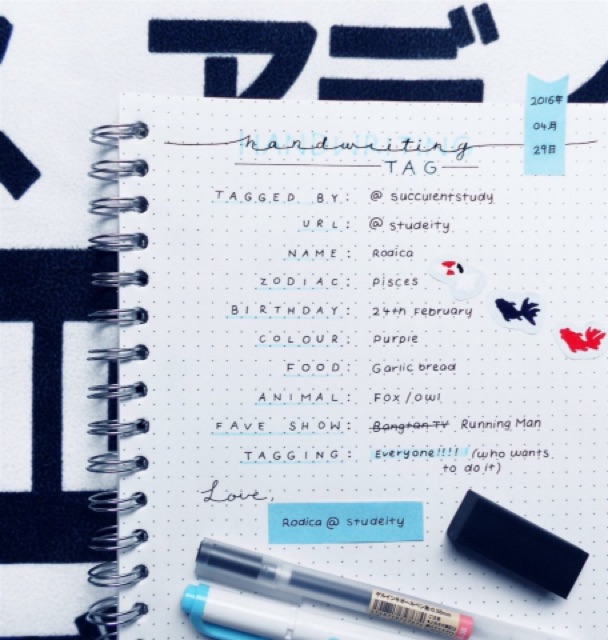 アジ
2016年
04月
29日
HANDWRITING
handwriting
TAG
TAGGED BY: @ succulentstudy
URL: @ studeity
NAME: Rodica
ZODIAC: Pisces
BIRTHDAY: 24th February
COLOUR: Purple
FOOD: Garlic bread
ANIMAL: Fox/owl
FAVE SHOW: Bangtan TV Running Man
TAGGING: Everyone!!!! (who wants
to do it)
Love,
Rodica @ studeity